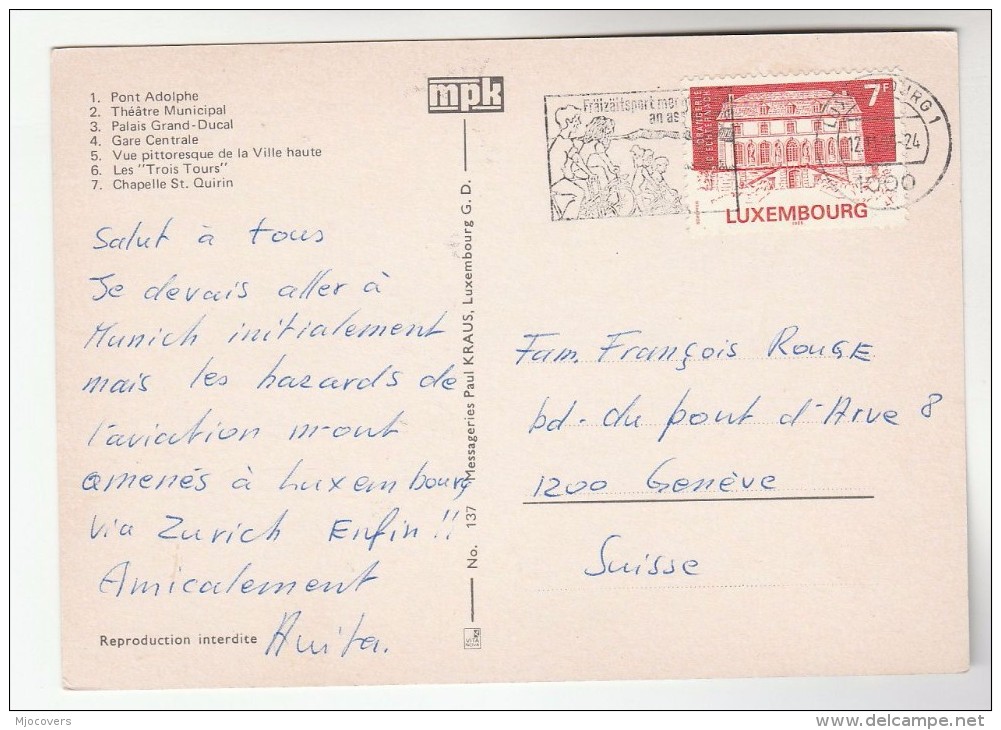 1. Pont Adolphe
2. Théâtre Municipal
3. Palais Grand-Ducal
4. Gare Centrale
5. Vue pittoresque de la Ville haute
6. Les "Trois Tours"
7. Chapelle St. Quirin
mpk
Salut à tous
Je devais aller à
Munich initialement
mais les hazards de
l'aviation m'ont
amenés à Luxembourg
via Zurich Enfin!!
Amicalement
Anita.
Reproduction interdite
No. 137 Messageries Paul KRAUS, Luxembourg G. D.
Fräizäitsport
an as
ORANGERIE
ECHTERNACH
7F
LUXEMBOURG
1000
Fam. François ROUGE
bd. du pont d'Arve 8
1200 Genève
Suisse
Mjocovers
delcampe.net